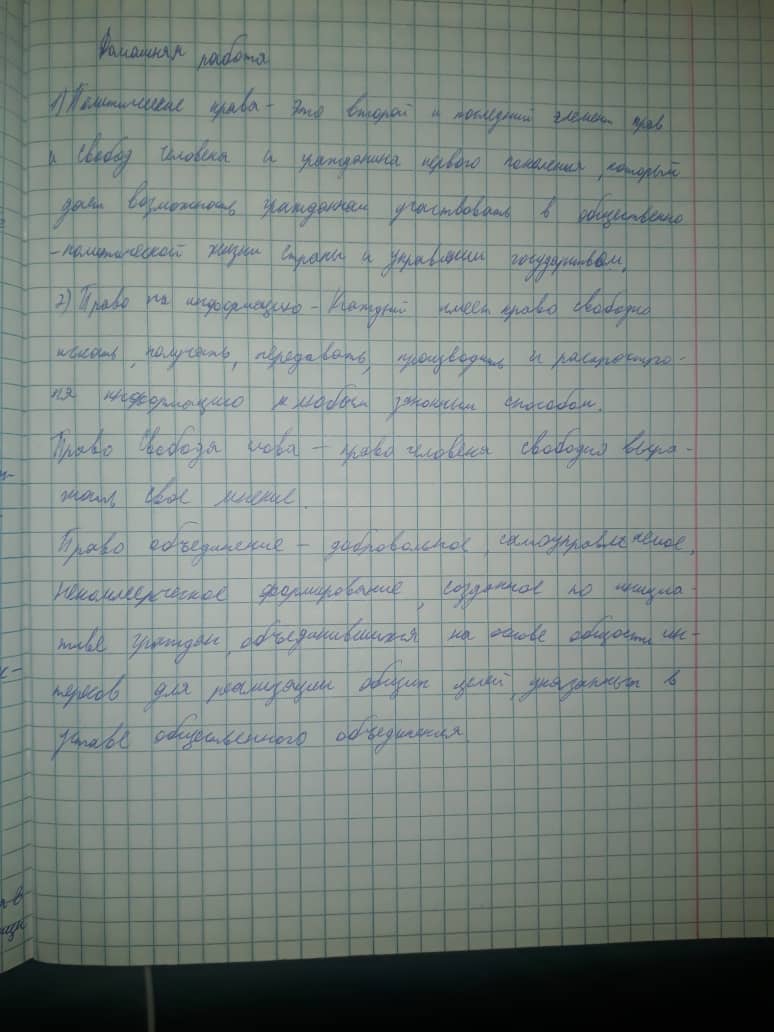 Домашняя работа
1) Политические права - это второй и последний элемент прав
и свобод человека и гражданина первого поколения, который
даёт возможность гражданам участвовать в общественно
-политической жизни страны и управлении государством.
2) Право на информацию - Каждый имеет право свободно
искать, получать, передавать, производить и распростра-
ня информацию любым законным способом.
Право свобода слова - право человека свободно выра-
жать свое мнение.
Право объединение - добровольное, самоуправляемое,
некоммерческое формирование, созданное по инициа-
тиве граждан, объединившихся на основе общности ин-
тересов для реализации общих целей, указанных в
уставе общественного объединения.